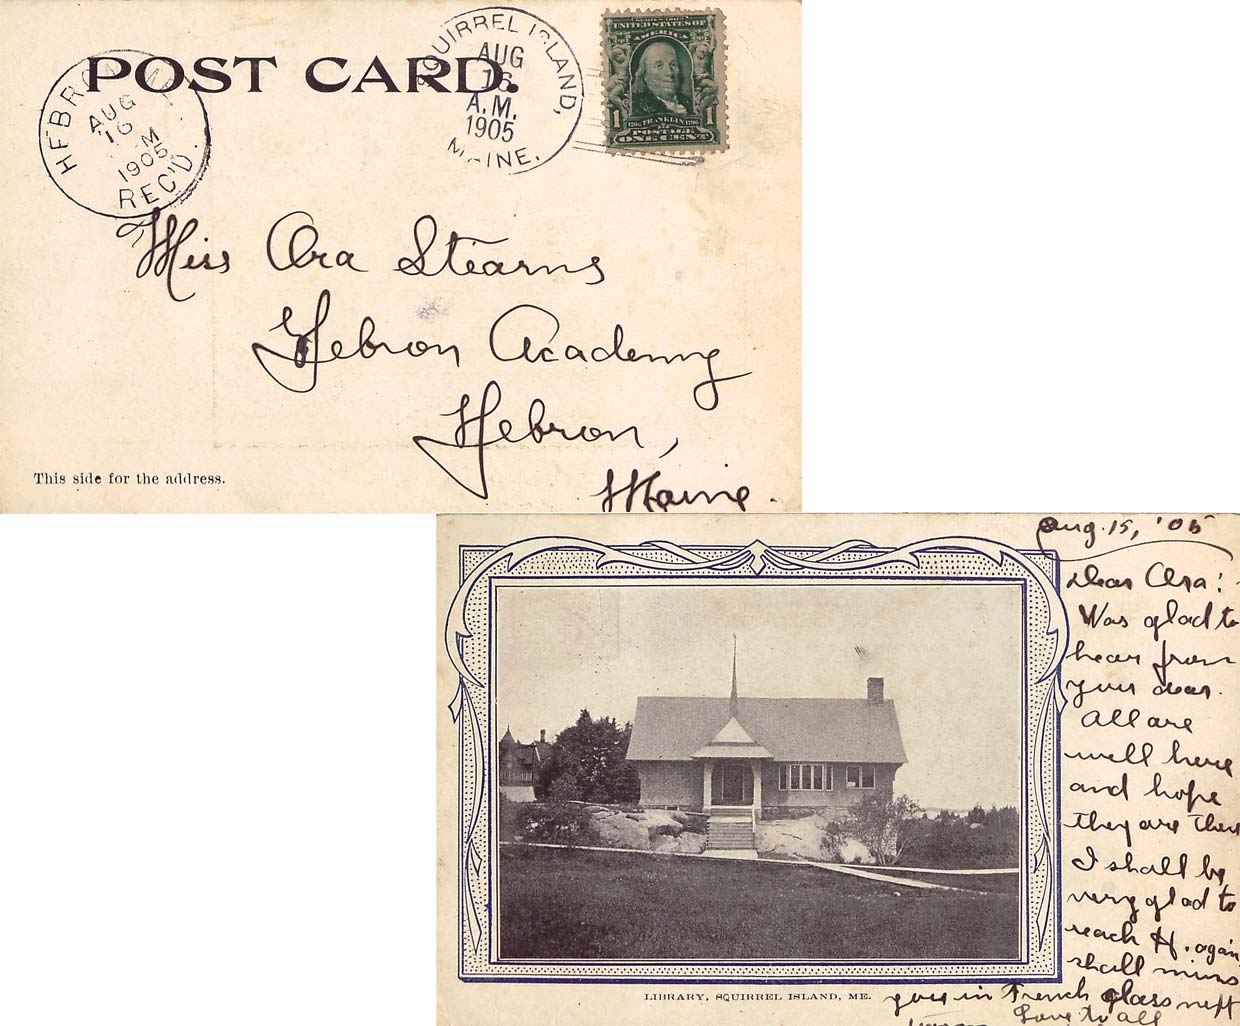 POST CARD.
HEBRON
AUG
16
M
1905
REC'D.
SQUIRREL ISLAND,
AUG
16
A.M.
1905
MAINE.
SERIES 1902
UNITED STATES OF
AMERICA
1 FRANKLIN 1
POSTAGE
ONE CENT
Miss Ora Stearns
Hebron Academy
Hebron,
Maine.
This side for the address.
Aug. 15, '05
Dear Ora:
Was glad to
hear from
you dear.
All are
well here
and hope
they are there
I shall be
very glad to
reach H. again
shall miss
you in French class next
Love to all
LIBRARY, SQUIRREL ISLAND, ME.